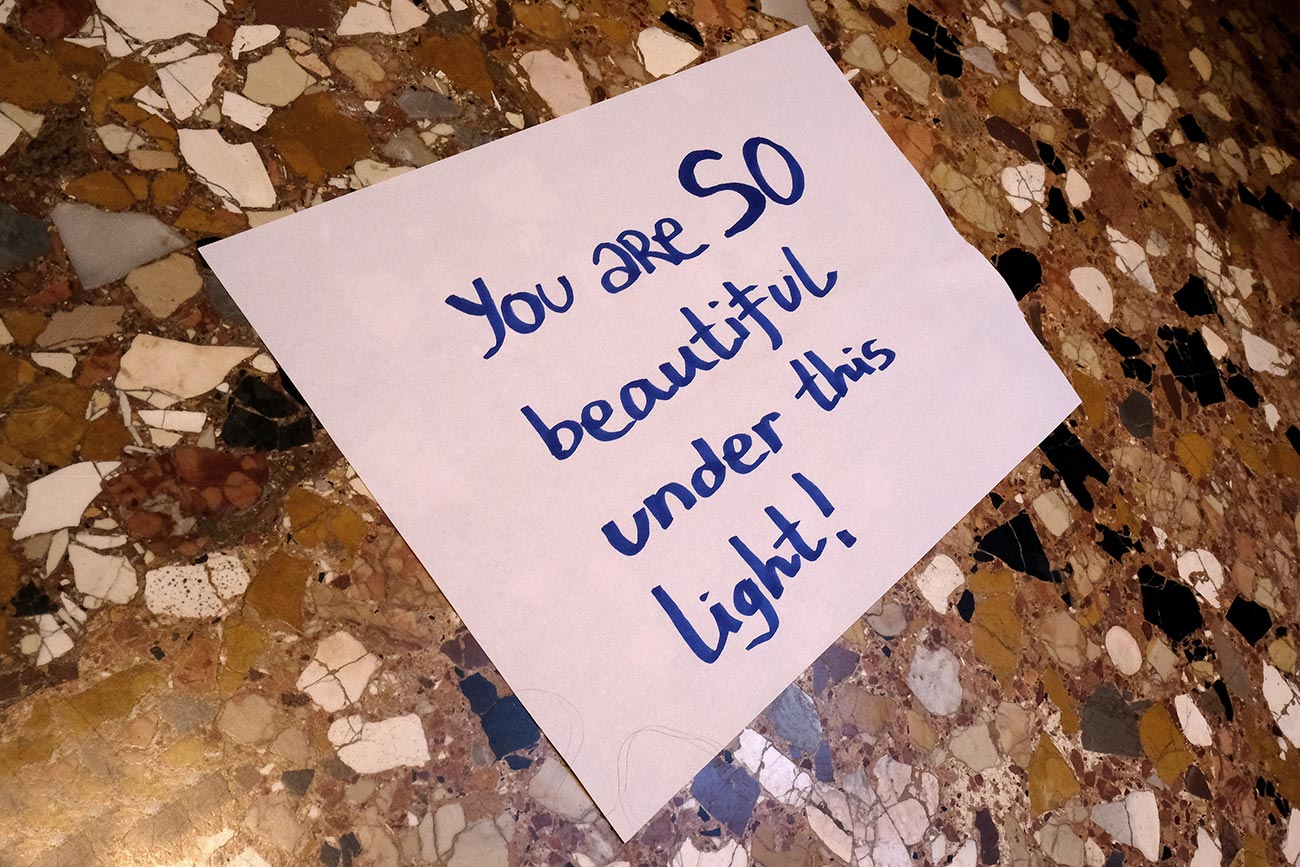 You aRe SO
beautiful
under this
light!